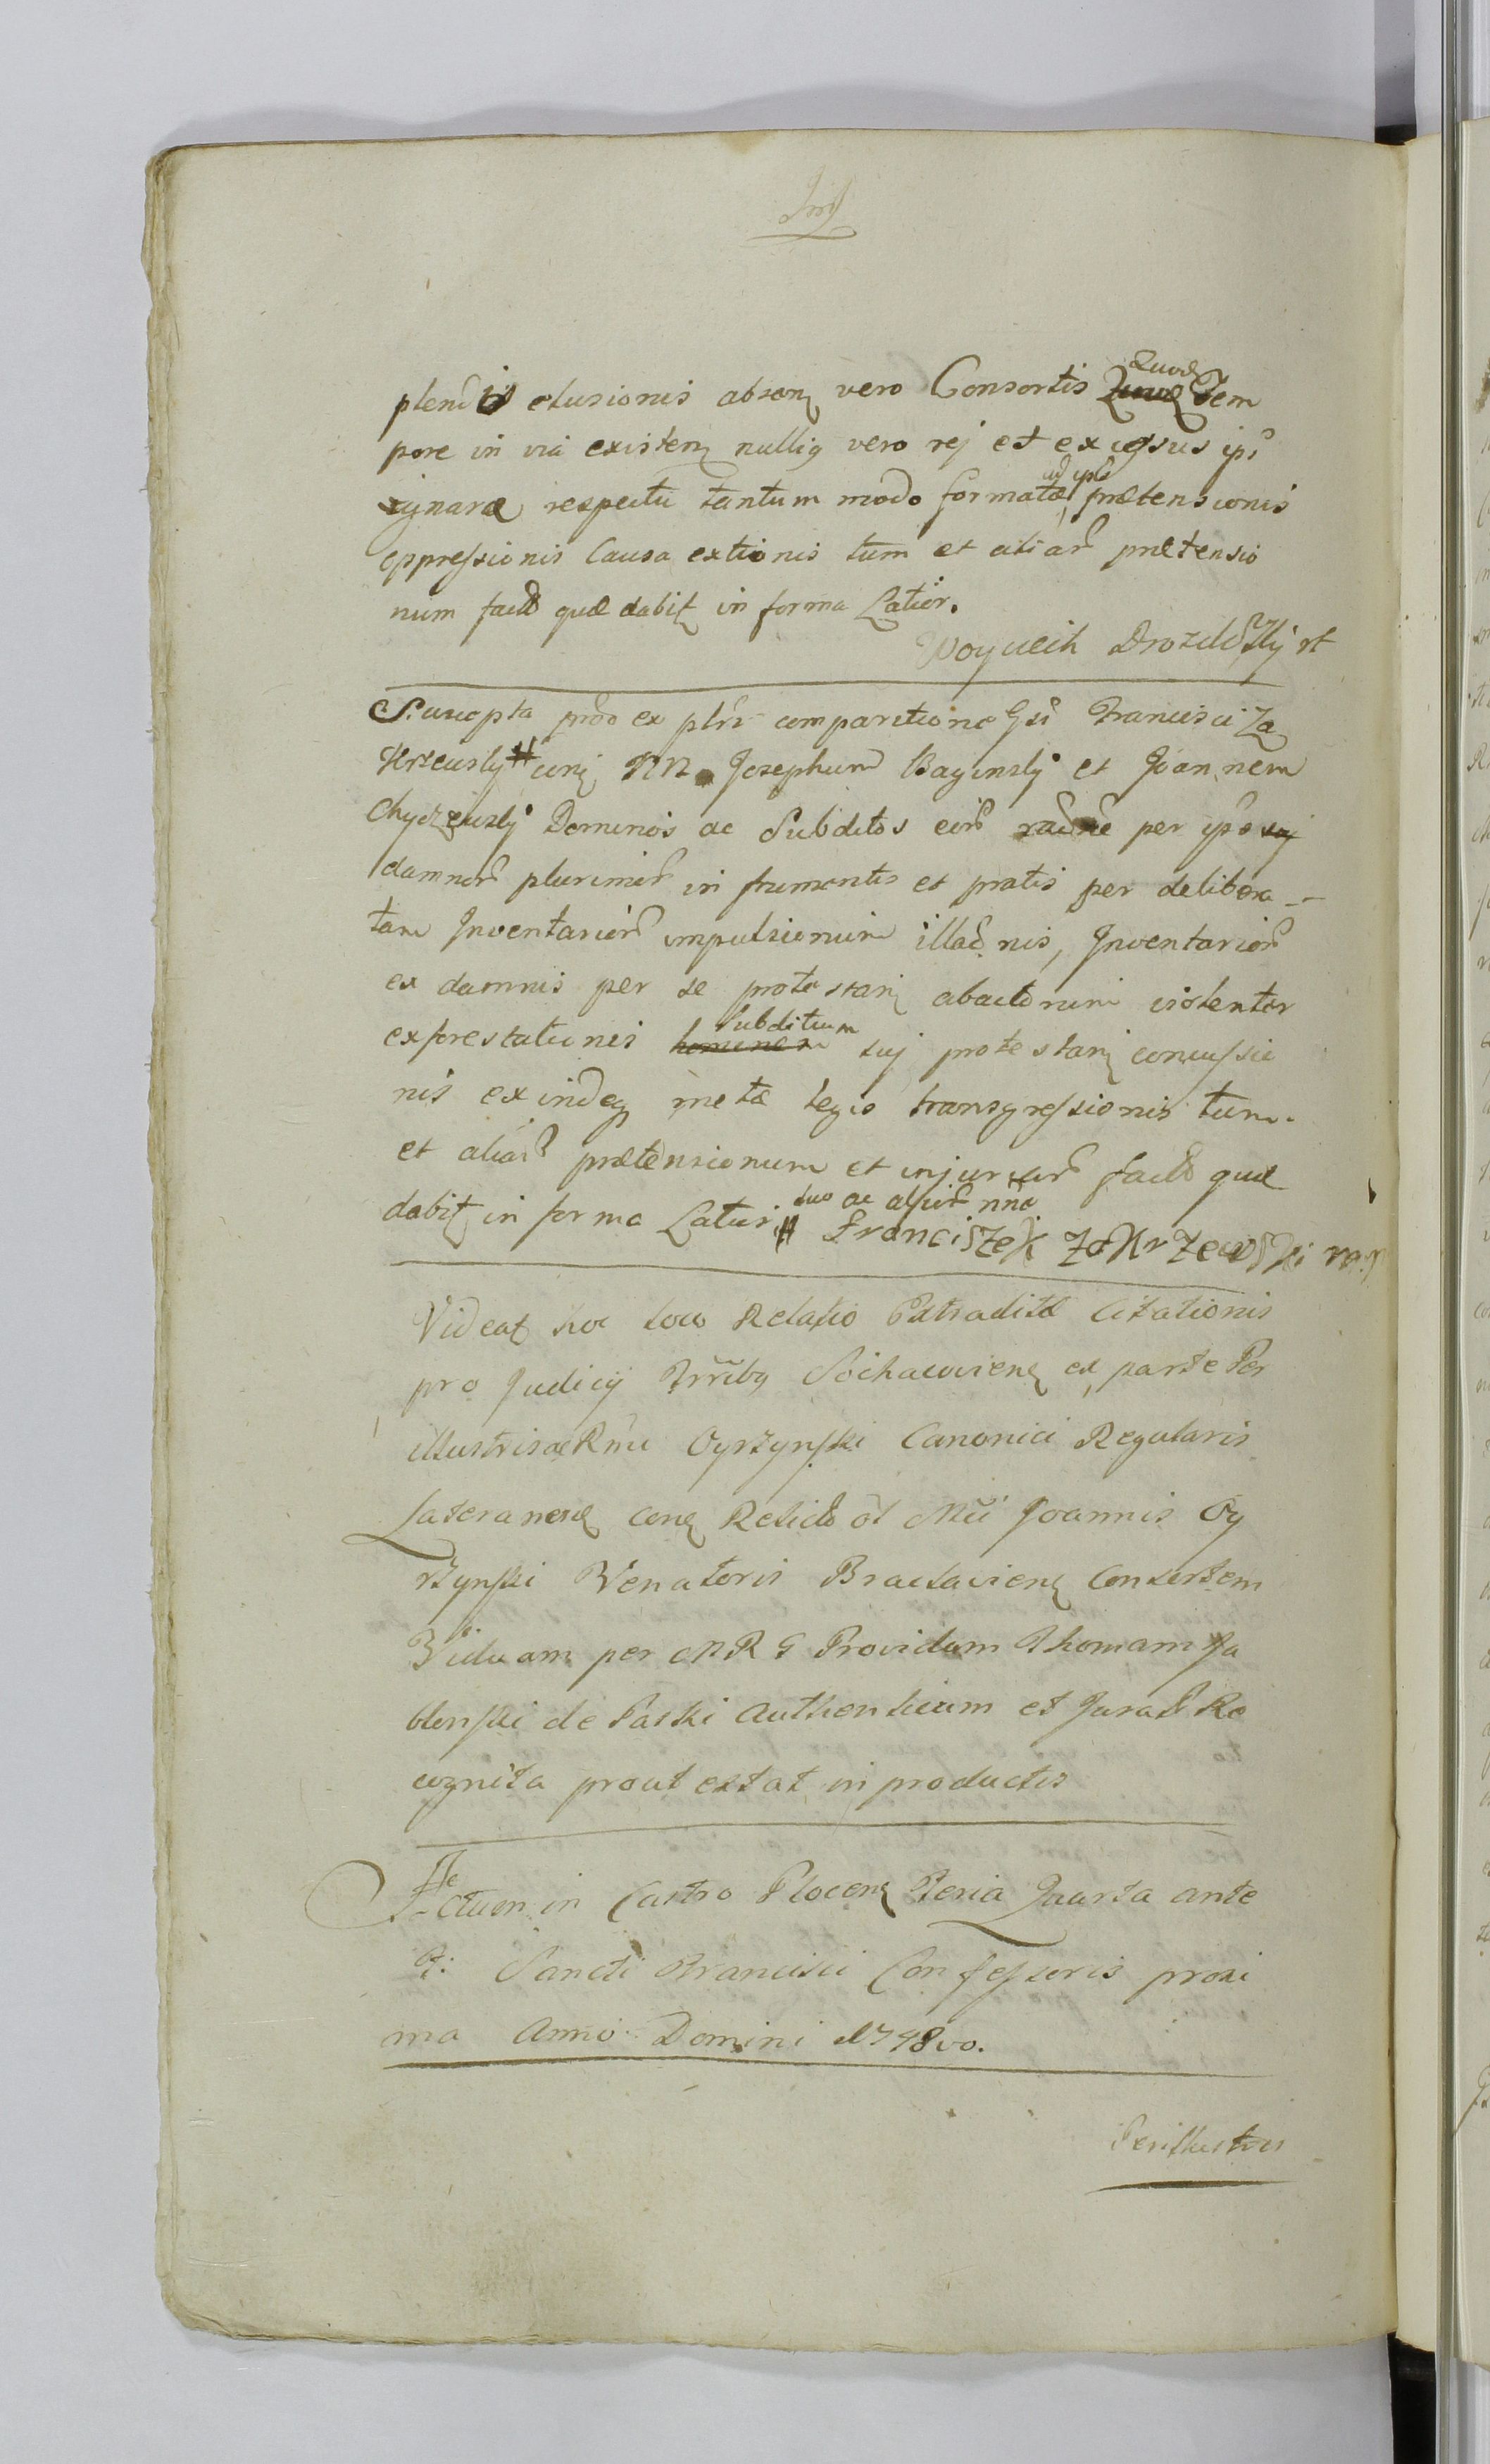 plend is elusionis absen vero Consortis Quod Tem
pore in via existen nullig vero rej et ex ipsi
respectu tantum modo formatæ ad ipso prætensionis
oppressionis Causa extionis tum et aliar prætensio
num facto quæ dabit in forma Latior.
Woyciech Drozdoski
Suscepta prod ex plri comparitione Gsi Francisci Za
Krzewsky # con NN Josephum Baginsky et Joannem
Chydzewsky Dominos ac Subditos eor racne per ipsos
damnor plurimor in frumentis et pratis per delibera-
tam Inventarior impulsionum illacnis, Inventarior
ex damnis per se protestan abactorum violenter
exforestationis hominem Subditum suj protestan concussio
nis exindeq metæ legis transgressionis tum
et aliar prætensionum et injuriar facto quæ
dabit in forma Latiori # suo ac alior nne
Franciszek ZaKrzewski
Videat hoc loco Relatio Extraditæ Citationis
pro Judicij Trrlibg Sochaciovien ex parte Per
illustris ac Rmi Oyrzynski Canonici Regularis
Lateranen con Relict ol Mci Joannis Oy
rzynski Venatoris Braclavien Consortem
Viduam per MRG Providum Thomam Ja
blonski de Paski Authenticum et Jurat Re
cognita prout extat in productis
Actum in Castro Plocen Feria Quarta ante
F: Sancti Francisci Confessoris proxi
ma Anno Domini 1748vo.
Perillustris